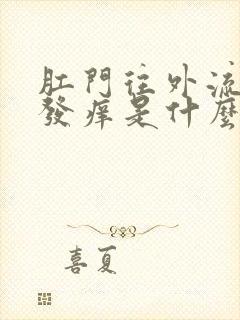 肛門往外流
發癢是什麼
喜夏